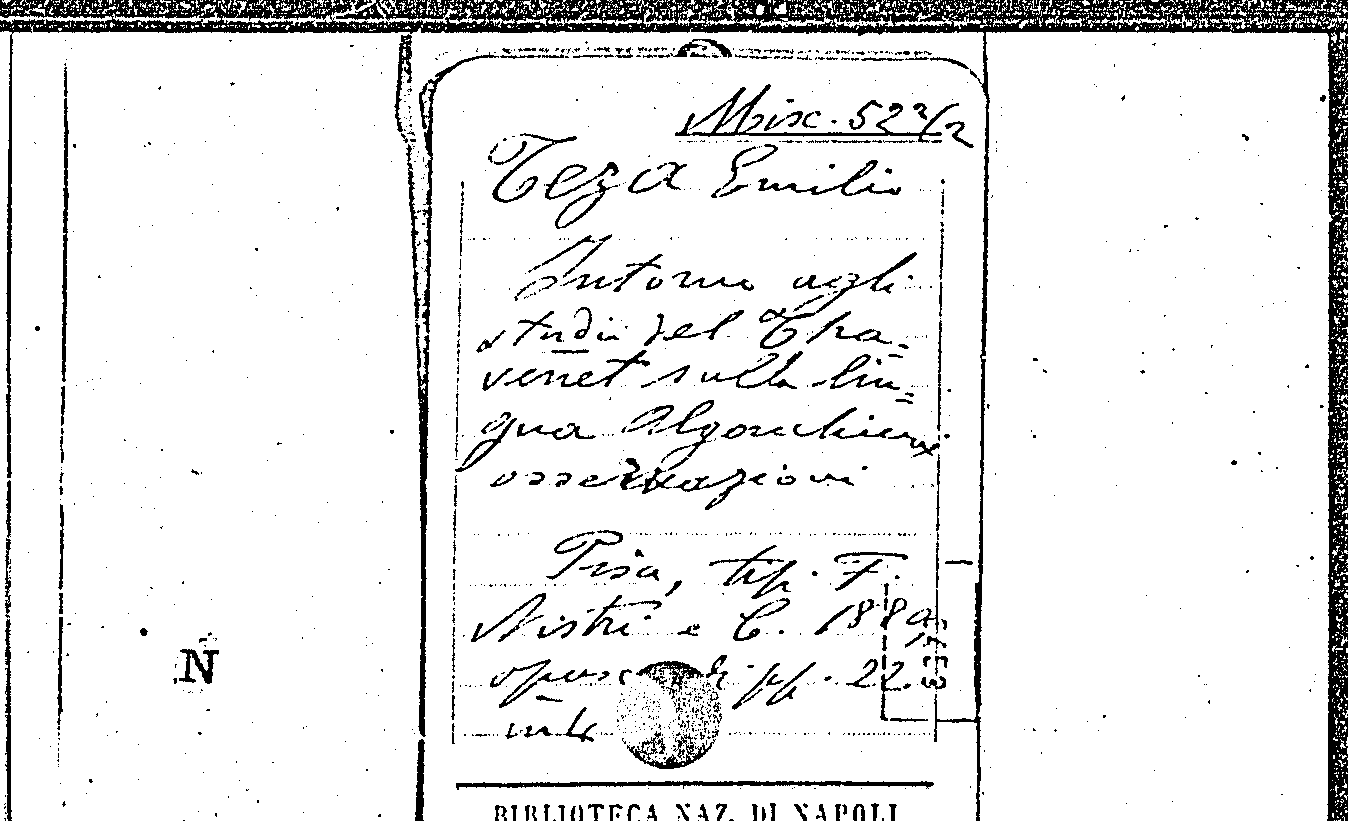 Misc. 522/2
Teza Emilio
Intorno agli
studii del Tha-
venet sulla lin=
gua Algonchina
osservazioni
Pisa, tip. F.
Nistri e C. 1880,
opusc. di pp. 22.
in 4
N
BIBLIOTECA NAZ. DI NAPOLI